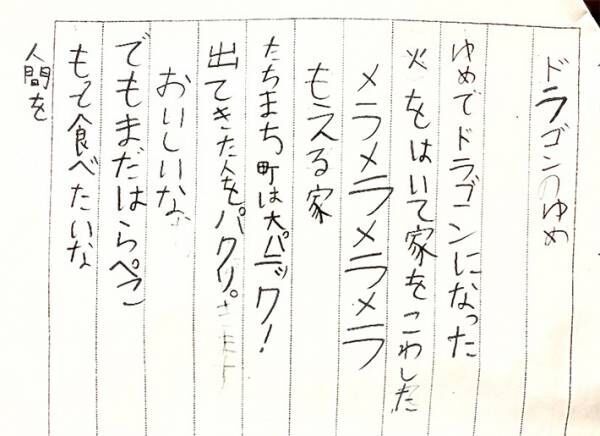 ドラゴンのゆめ
ゆめでドラゴンになった
火をはいて家をこわした
メラメラメラメラ
もえる家
たちまち町は大パニック！
出てきた人をパクリ。
おいしいな
でもまだはらぺこ
もっと食べたいな
人間を